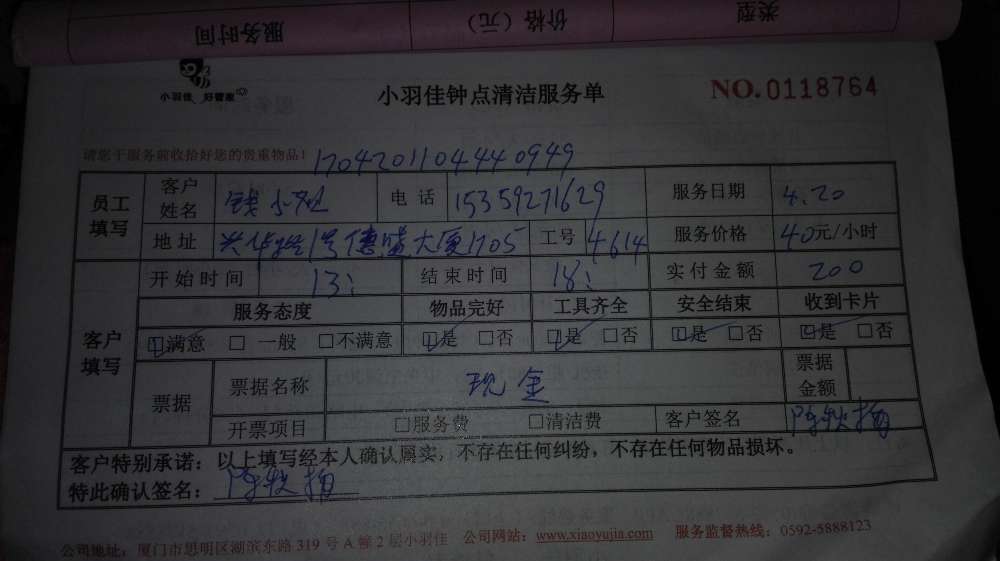 服务时间 价格（元） 类型
小羽佳 好管家
小羽佳钟点清洁服务单
NO.0118764
请您于服务前收拾好您的贵重物品！ 1704201104440949
员工填写 客户姓名 钱小 电话 15359271629 服务日期 4.20
地址 德盛大厦1705 工号 4614 服务价格 40元/小时
开始时间 13: 结束时间 18: 实付金额 200
客户填写 服务态度 物品完好 工具齐全 安全结束 收到卡片
☑满意 □一般 □不满意 ☑是 □否 ☑是 □否 ☑是 □否 ☑是 □否
票据 票据名称 现金 票据金额
开票项目 □服务费 □清洁费 客户签名
客户特别承诺：以上填写经本人确认属实，不存在任何纠纷，不存在任何物品损坏。
特此确认签名：
公司地址：厦门市思明区湖滨东路 319 号 A 幢 2 层小羽佳 公司网站：www.xiaoyujia.com 服务监督热线：0592-5888123